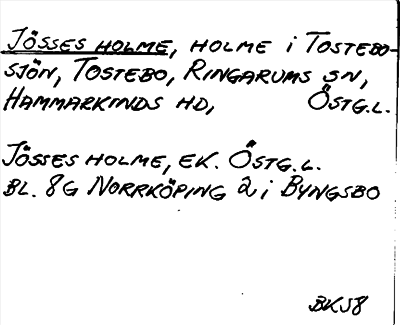 JÖSSES HOLME, HOLME i TOSTEBO-
SJÖN, TOSTEBO, RINGARUMS SN,
HAMMARKINDS HD, ÖSTG.L.
JÖSSES HOLME, EK. ÖSTG.L.
BL. 8G NORRKÖPING 2 i BYNGSBO
BKS8